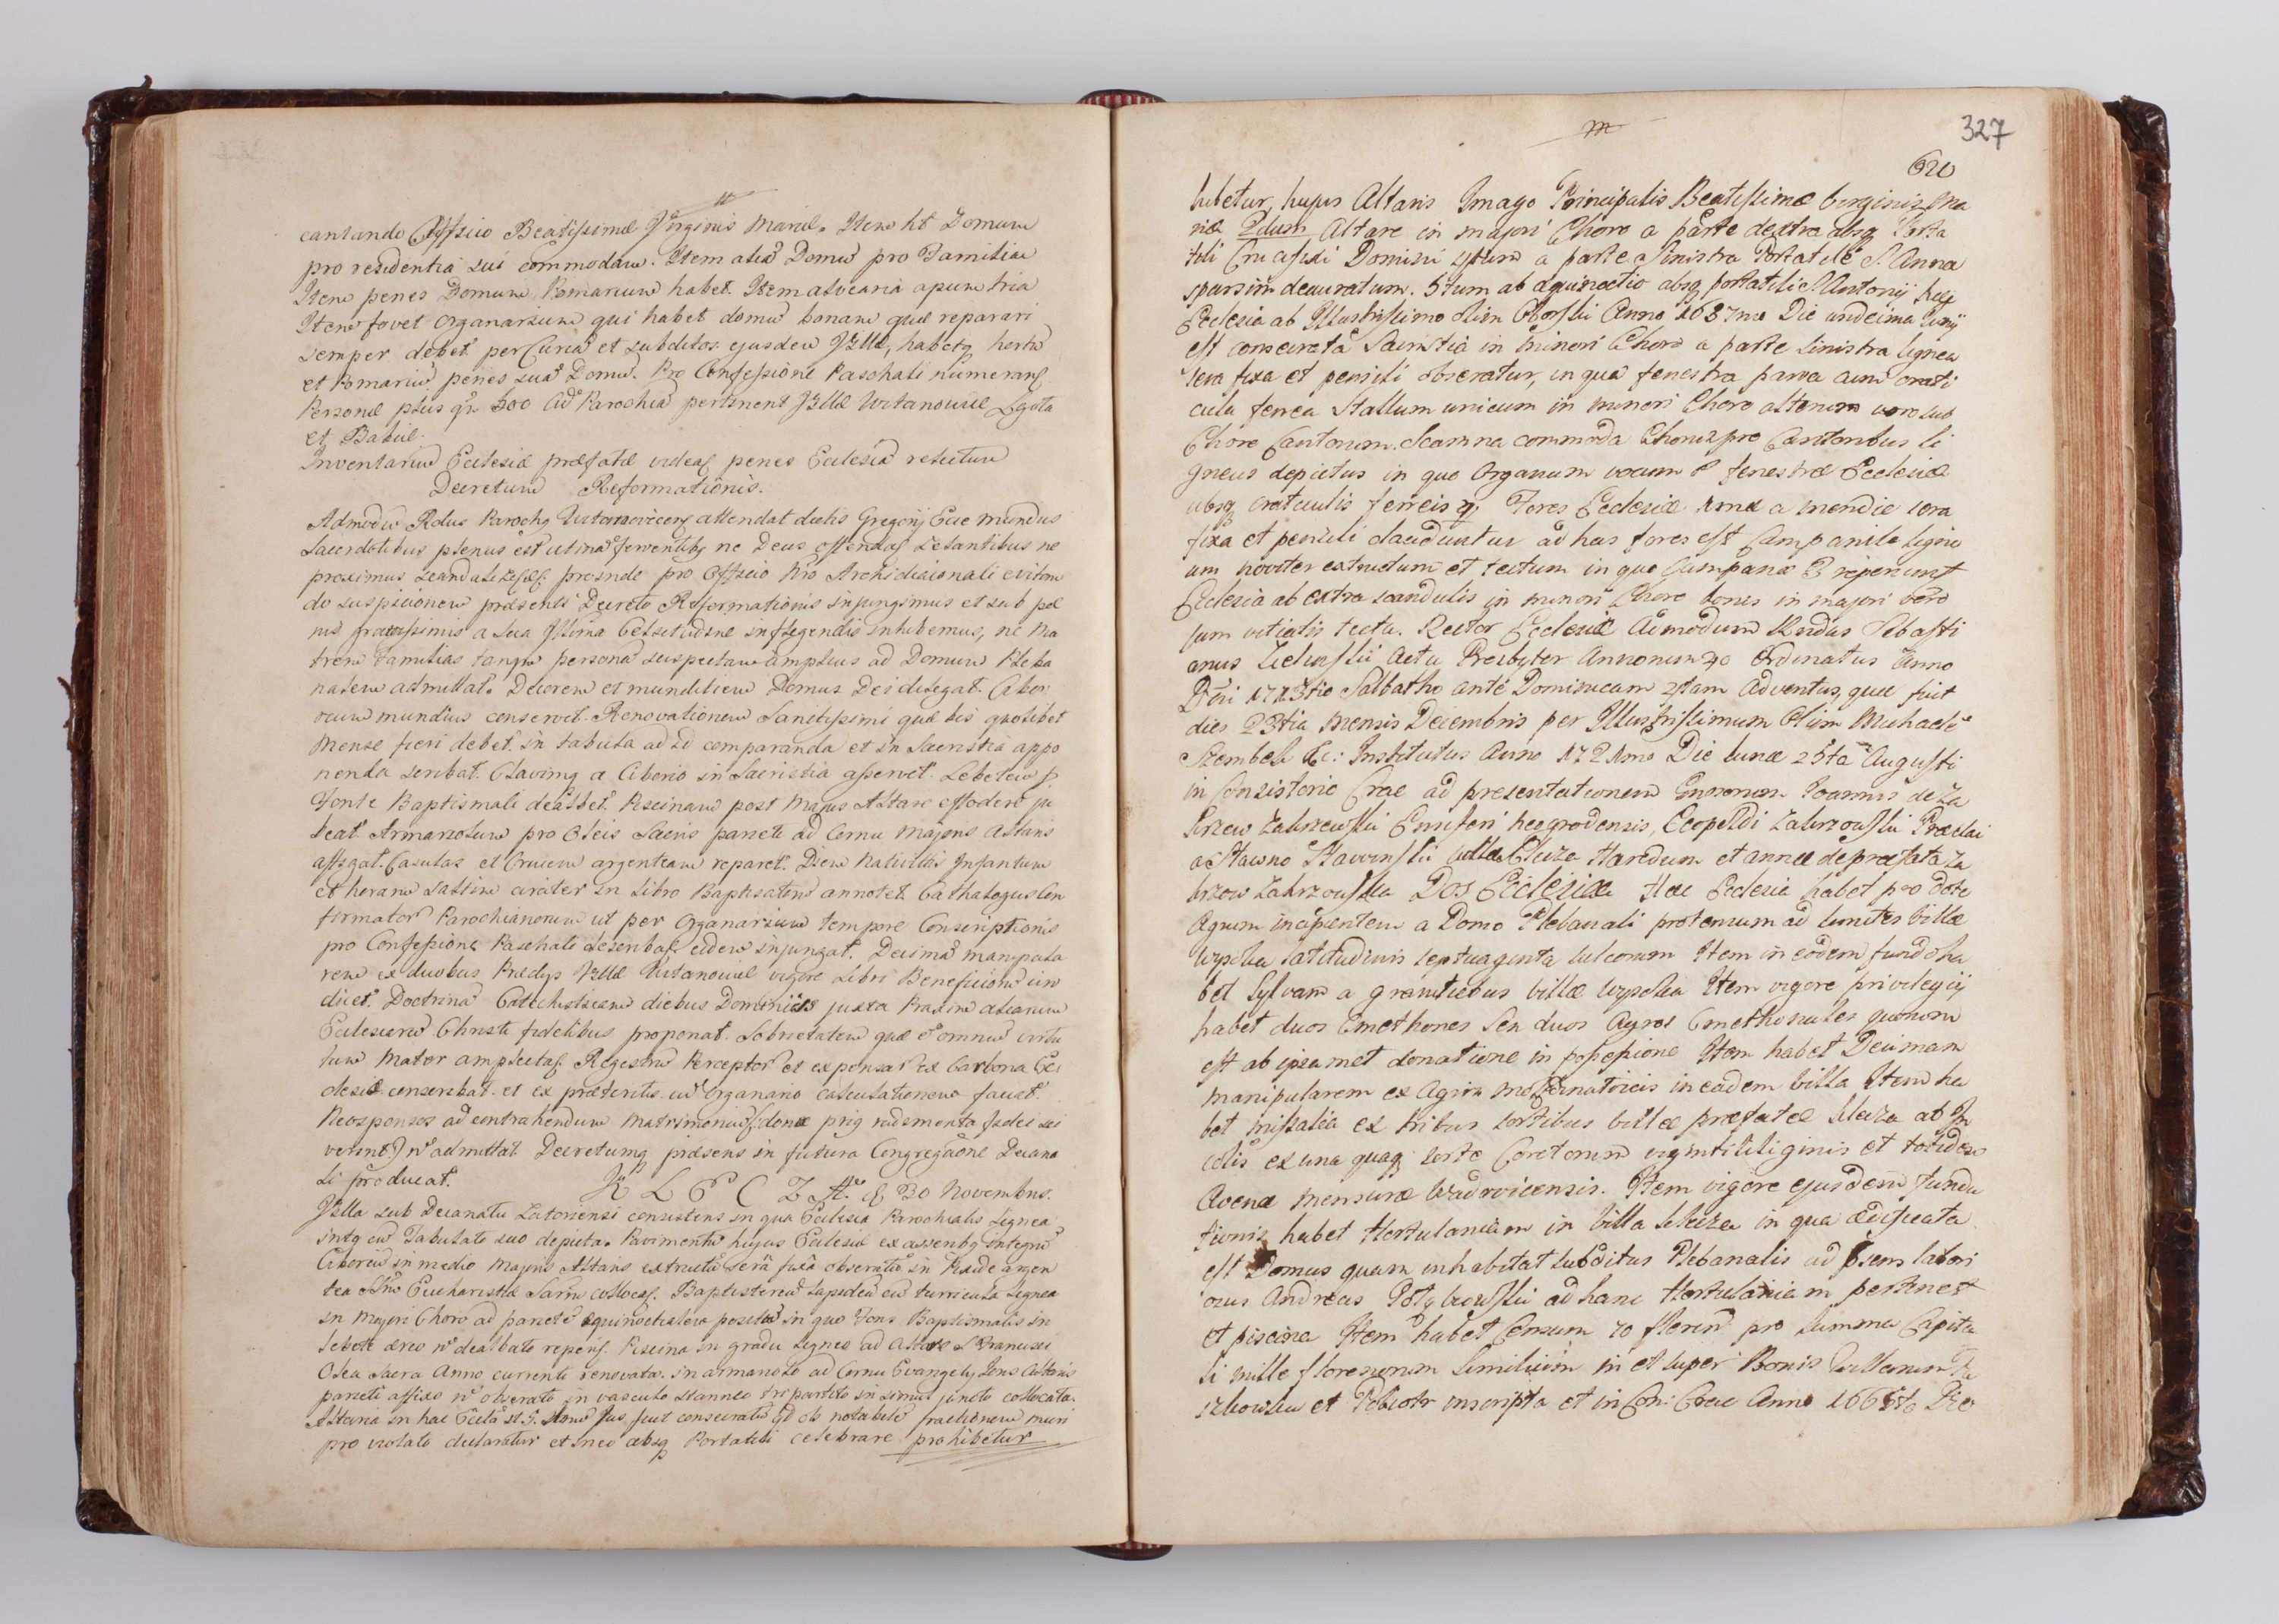 cantando Officio Beatissimæ Virginis Mariæ. Item ht Domum
pro residentia sui commodam. Item aliã Domũ pro Familia
Item penes Domum Pomarium habet. Item alvearia apum tria
Item fovet Organarium qui habet domũ bonam quæ reparari
semper debet per Curiã et subditos ejusdem Vllæ, habetq hortũ
et Pomariũ penes suã Domũ. Pro Confessione Paschali numerant
Personæ plus qm 500 Ad Parochiã pertinent Vllæ Witanowice Lgota
et Babice.
Inventariũ Ecclesiæ præfatæ videas penes Ecclesiã relictum
Decretum Reformationis.
Admodũ Rdus Parochus attendat dictis Gregorij Ecce mundus
Sacerdotibus plenus est utinã ferventibs ne Deus offendas zelantibus ne
proximus scandalizes proinde pro Officio Nro Archidiaconali evitan
do suspicionem præsenti Decreto Reformationis injungimus et sub pæ
nis gravissimis a Sua Illma Celsitudine infligendis inhibemus, ne Ma
trem Familias tanqm personã suspectam amplius ad Domum Pleba
nalem admittat. Decorem et munditiem Domus Dei diligat. Cibor
ium mundius conservet. Renovationem Sanctissimi quæ bis quolibet
Mense fieri debet in tabula ad id comparanda et in Sacristia appo
nenda scribat. Clavimq a Ciborio in Sacristia asservet. Lebetem p
Fonte Baptismali dealbet. Piscinam post Majus Altare effodere ju
beat. Armariolum pro Oleis Sacris parieti ad Cornu Majoris Altaris
affigat. Casulas et Crucem argenteam reparet. Diem Nativitatis Infantum
et horam saltim circiter in Libro Baptisatorũ annotet. Cathalogus Con
firmator Parochianorum ut per Organarium tempore Conscriptionis
pro Confessione Paschali describas eidem injungat. Decimã manipula
rem ex duobus Prædys Vllæ Witanowice vigore Libri Beneficiorũ vin
dicet. Doctrinã Catechisticam diebus Dominicis juxta Praxim aliarum
Ecclesiarũ Christi fidelibus proponat. Sobrietatem quæ ẽ omniũ virtu
tum Mater amplectas. Regestrũ Perceptor et expensar ex Carbona Ec
clesiæ conscribat et ex præteritis cũ Organario calculationem faciat.
Neosponsos ad contrahendum matrimoniũ donec priq rudimenta fidei sci
verint n admittat Decretumq præsens in futura Congregãone Decana
li producat.
R L E C Z A. & 30 Novembris.
Vlla sub Decanatu Zatoriensi consistens in qua Ecclesia Parochialis Lignea
intq cũ Tabulato suo depicta. Pavimentũ hujus Ecclesiæ ex asseribq integrũ
Ciboriũ in medio Majoris Altaris extructũ será fixá obseratũ in Pixide argen
tea Eucharistiæ Sacrũ collocas. Baptisteriũ lapideũ cũ turricula Lignea
in Majori Choro ad parietẽ æquinoctialem positũ in quo Fons Baptismalis in
lebete æreo n dealbato reperis. Piscina in gradu ligneo ad Altare S Francisci
Olea Sacra Anno currenti renovata. in armariolo ad Cornu Evangely Altaris
parieti affixo n obserato in vasculo stanneo tripartito in simul juncto collocata.
Altaria in hac Ecclã st 5. fuit consecratũ qd ob notabilẽ fractionem muri
pro violato declaratur et in eo absq Portatili celebrare prohibetur
327
620
hibetur, hujus Altaris Imago Principalis Beatissimæ Virginis Ma
riæ 2dum Altare in majori Choro a parte dextra absq Porta
tili Crucifixi Domini a parte sinistra Portatile S. Anna
sparsim deauratum. 5tum ab æquinoctio absq portatili S Antonij hæc
Ecclesia ab Illustrissimo Olim Oborski Anno 1637mo Die undecima Junij
est consecrata Sacristia in minori Choro a parte sinistra lignea
sera fixa et pensili obseratur, in qua fenestra parva cum crati
cula ferrea Stallum unicum in minori Choro alterum vero sub
Choro Cantorum. Scamna commoda Chorus pro Cantoribus li
gneus depictus in quo Organum vocum 8 fenestræ Ecclesiæ
absq craticulis ferreis Fores Ecclesiæ imæ a meridie sera
fixa et pensili clauduntur ad has fores est Campanile ligne
um noviter extructum et tectum in quo Campanæ 3 reperiunt
Ecclesia ab extra scandulis in minori Choro bonis in majori vero
jam vitiatis tecta. Rector Ecclesiæ Admodum Rndus Sebasti
anus Actu Presbyter Annorum 40 Ordinatus Anno
Dñi 1713tio Sabbatho ante Dominicam 4tam Adventus, quæ fuit
dies 23tia Mensis Decembris per Illustrissimum Olim Michaele
Szembek &c: Institutus Anno 1721mo Die Lunæ 25ta Augusti
in Consistorio Crac ad presentationem Gnrorum Joannis de Za
krzew Zakrzewski Ensiferi Leopoldi Zakrzowski Præclai
ac Stawno Stawinski villæ Hæredum et Annæ de præfata Za
krzow Zakrzowska Dos Ecclesiæ Hæc Ecclesia habet pro dote
Agrum incipientem a Domo Plebanali protensum ad limites villæ
Wysoka latitudinis septuaginta sulcorum Item in eodem fundo ha
bet Sylvam a granitiebus villæ Wysoka Item vigore privilegij
habet duos Cmethones seu duos Agros Cmethonales quorum
est ab ipsamet donatione in possessione Item habet Decimam
manipularem ex Agris in eadem villa Item ha
bet missalia ex tribus sortibus villæ præfatæ ab In
colis ex una quaq sorte Coretorum viginti siliginis et totidem
Avenæ mensuræ Wadovicensis. Item vigore ejusdem funda
tionis habet Hortulaniam in villa in qua ædificata
est Domus quam inhabitat subditus Plebanalis ad labori
osus Andreas ad hanc Hortulaniam pertinet
et piscina Item habet Censum 70 floren pro summa Capita
li mille florenorum similium in et super Bonis
et inscripta et in Crac Anno Die